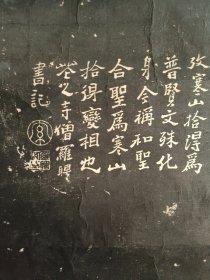 攷寒山拾得爲
普賢文殊化
身今稱和聖
合聖爲寒山
拾得變相也
花之寺僧羅聘
書記